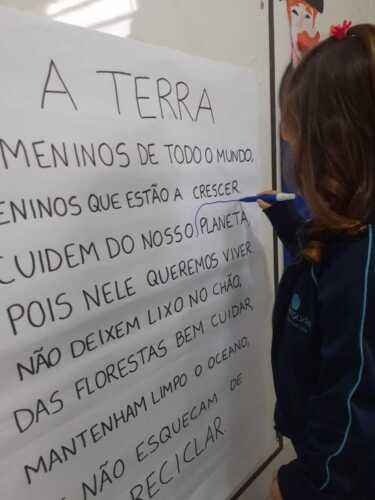 A TERRA
MENINOS DE TODO O MUNDO,
ENINOS QUE ESTÃO A CRESCER
CUIDEM DO NOSSO PLANETA,
POIS NELE QUEREMOS VIVER.
NÃO DEIXEM LIXO NO CHÃO,
DAS FLORESTAS BEM CUIDAR,
MANTENHAM LIMPO O OCEANO,
NÃO ESQUEÇAM DE
RECICLAR.